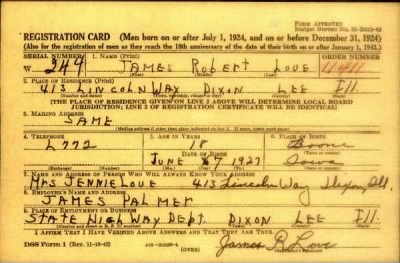 FORM APPROVED
REGISTRATION CARD (Men born on or after July 1, 1924, and on or before December 31, 1924)
(Also for the registration of men as they reach the 18th anniversary of the date of their birth on or after January 1, 1925.)
SERIAL NUMBER 1. NAME (Print) ORDER NUMBER
W 249 JAMES ROBERT LOVE 11411
(First) (Middle) (Last)
2. PLACE OF RESIDENCE (Print)
413 LINCOLN WAY DIXON LEE Ill.
[THE PLACE OF RESIDENCE GIVEN ON LINE 2 ABOVE WILL DETERMINE LOCAL BOARD
JURISDICTION; LINE 2 OF REGISTRATION CERTIFICATE WILL BE IDENTICAL]
3. MAILING ADDRESS
SAME
4. TELEPHONE 5. AGE IN YEARS 6. PLACE OF BIRTH
L772 18 Boone
DATE OF BIRTH
JUNE 1927 Iowa
7. NAME AND ADDRESS OF PERSON WHO WILL ALWAYS KNOW YOUR ADDRESS
MRS JENNIE LOVE 413 Lincoln Way Dixon, Ill.
8. EMPLOYER'S NAME AND ADDRESS
JAMES PALMER
9. PLACE OF EMPLOYMENT OR BUSINESS
STATE HIGHWAY DEPT. DIXON LEE Ill.
I AFFIRM THAT I HAVE VERIFIED ABOVE ANSWERS AND THAT THEY ARE TRUE.
DSS Form 1 (Rev. 11-16-42) (OVER) James R. Love